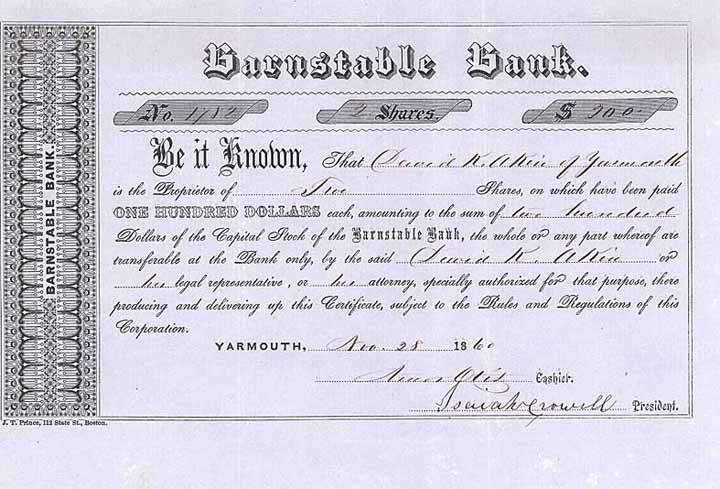 Barnstable Bank.
No. 1,412 2 Shares. $ 200.
Be it Known, That David K. Akin of Yarmouth
is the Proprietor of Two Shares, on which have been paid
ONE HUNDRED DOLLARS each, amounting to the sum of two hundred
Dollars of the Capital Stock of the Barnstable Bank, the whole or any part whereof are
transferable at the Bank only, by the said David K. Akin or
his legal representative, or his attorney, specially authorized for that purpose, there
producing and delivering up this Certificate, subject to the Rules and Regulations of this
Corporation.
YARMOUTH, Nov. 28 1860
Amos Otis Cashier.
Isaiah Crowell President.
BARNSTABLE BANK.
J. T. Prince, 112 State St., Boston.